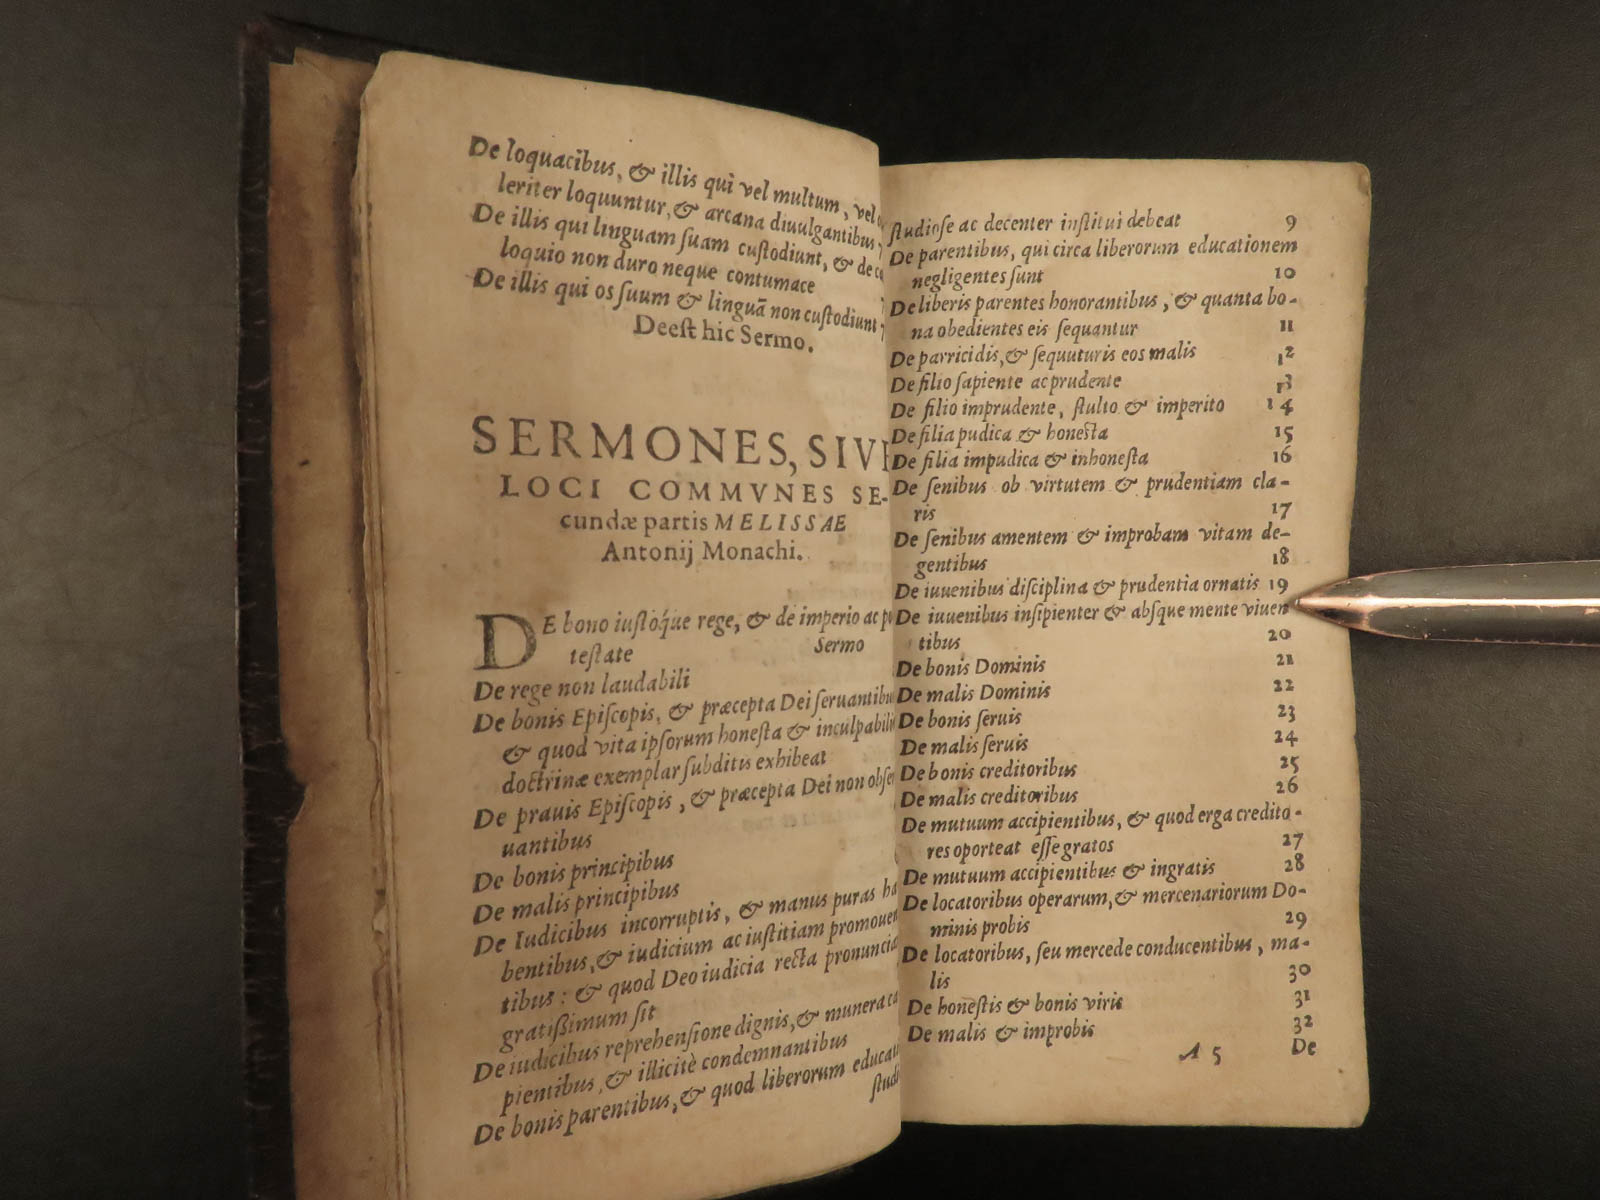 De loquacibus, & illis qui vel multum, vel
leriter loquuntur, & arcana diuulgantibus
De illis qui linguam ſuam cuſtodiunt, & de
loquio non duro neque contumace
De illis qui os ſuum & linguā non cuſtodiunt
Deeſt hic Sermo.
SERMONES, SIVE
LOCI COMMVNES SE-
cundæ partis MELISSAE
Antonij Monachi.
DE bono iuſtóque rege, & de imperio ac
teſtate Sermo
De rege non laudabili
De bonis Epiſcopis, & præcepta Dei ſeruantibu
& quod vita ipſorum honeſta & inculpabili
doctrinæ exemplar ſubditis exhibeat
De prauis Epiſcopis, & præcepta Dei non obſe
uantibus
De bonis principibus
De malis principibus
De Iudicibus incorruptis, & manus puras ha
bentibus, & iudicium ac iuſtitiam promouen
tibus: & quod Deo iudicia recta pronuncia
gratißimum ſit
De iudicibus reprehenſione dignis, & munera ca
pientibus, & illicitè condemnantibus
De bonis parentibus, & quod liberorum educat
ſtudi
ſtudioſe ac decenter inſtitui debeat 9
De parentibus, qui circa liberorum educationem
negligentes ſunt 10
De liberis parentes honorantibus, & quanta bo-
na obedientes eis ſequantur 11
De parricidis, & ſequuturis eos malis 12
De filio ſapiente ac prudente 13
De filio imprudente, ſtulto & imperito 14
De filia pudica & honeſta 15
De filia impudica & inhoneſta 16
De ſenibus ob virtutem & prudentiam cla-
ris 17
De ſenibus amentem & improbam vitam de-
gentibus 18
De iuuenibus diſciplina & prudentia ornatis 19
De iuuenibus inſipienter & abſque mente viuen
tibus 20
De bonis Dominis 21
De malis Dominis 22
De bonis ſeruis 23
De malis ſeruis 24
De bonis creditoribus 25
De malis creditoribus 26
De mutuum accipientibus, & quod erga credito-
res oporteat eſſe gratos 27
De mutuum accipientibus & ingratis 28
De locatoribus operarum, & mercenariorum Do-
minis probis 29
De locatoribus, ſeu mercede conducentibus, ma-
lis 30
De honeſtis & bonis viris 31
De malis & improbis 32
A 5 De